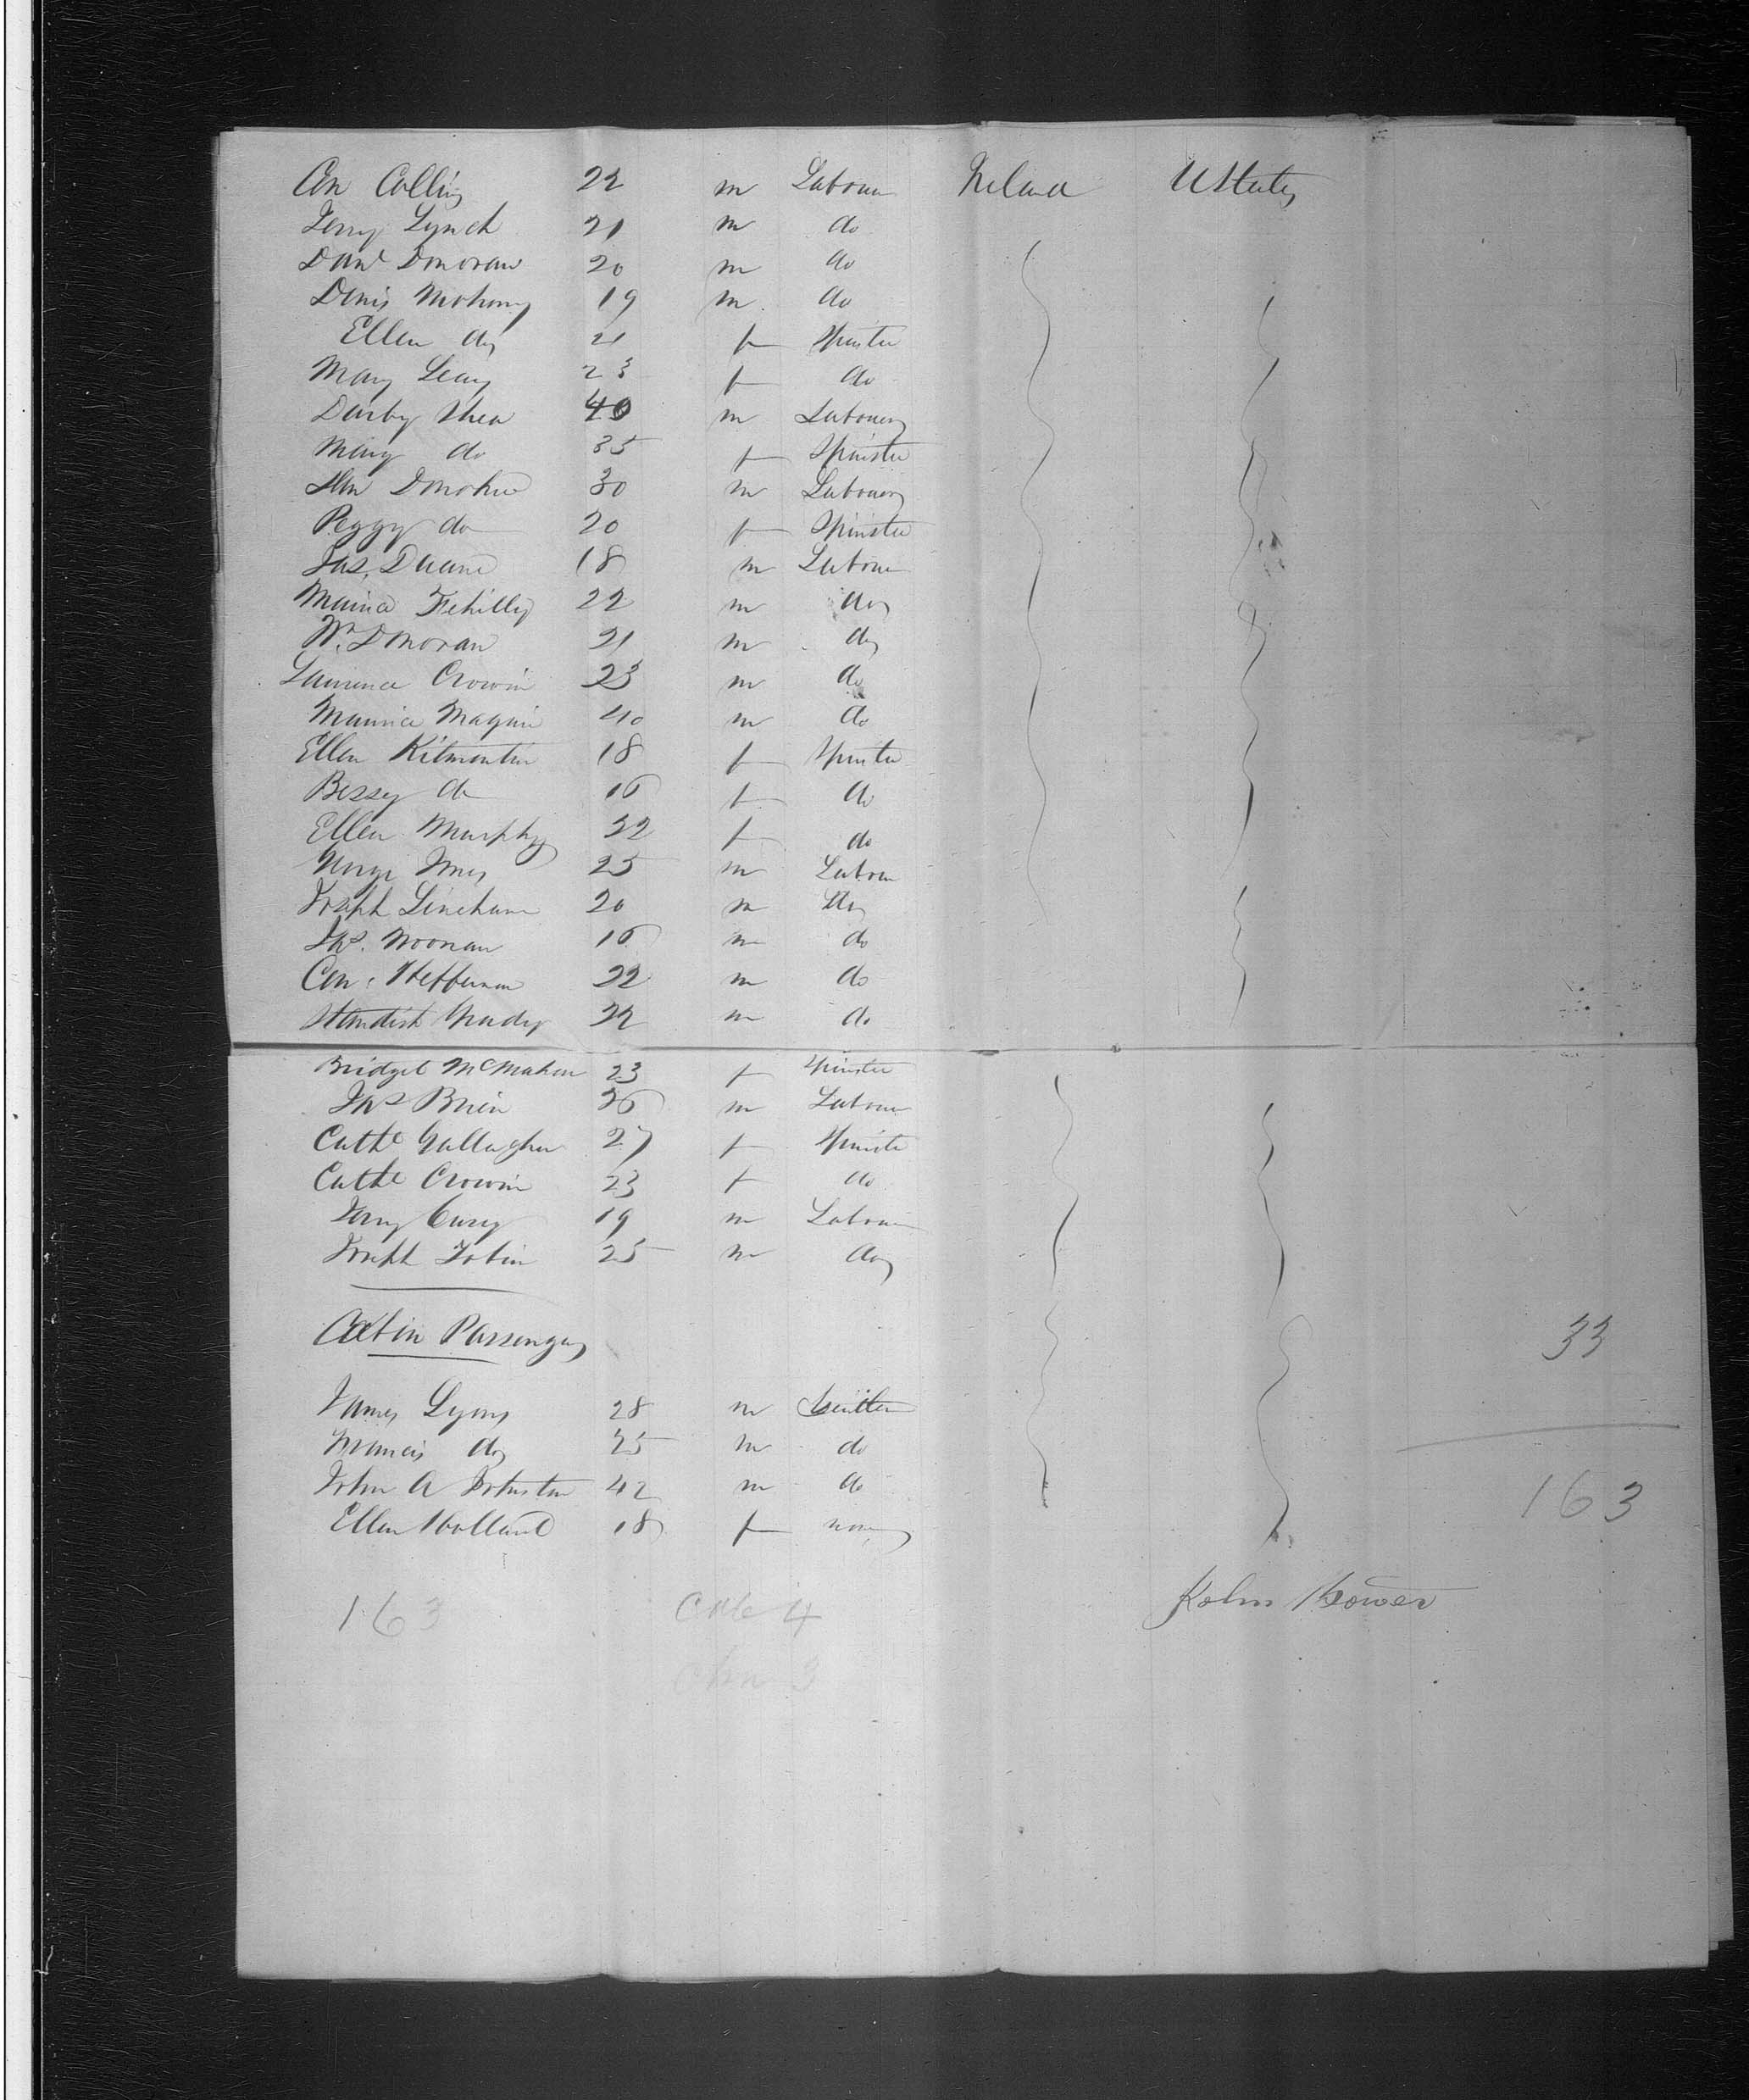 Con Collins 22 m Labourer Ireland U States
Jerry Lynch 21 m do
Danl Donovan 20 m do
Denis Mahony 19 m do
Ellen do 21 f Spinster
Mary Leary 23 f do
Darby Shea 40 m Labourer
Mary do 35 f Spinster
Donohue 30 m Labourer
Peggy do 20 f Spinster
Jas. Duane 18 m Labourer
Maurice Fehilly 22 m do
Wm Donovan 21 m do
Laurence Crowin 23 m do
Maurice Maguire 40 m do
Ellen Kilmartin 18 f Spinster
Bessy do 16 f do
Ellen Murphy 22 f do
25 m Labourer
Joseph Linehan 20 m do
Jas. Noonan 16 m do
Con. Heffernan 22 m do
Standish Grady 22 m do
Bridget McMahon 23 f Spinster
Jas Brien 36 m Labourer
Cathe Gallagher 27 f Spinster
Cathe Crowin 23 f do
Jerry Casey 19 m Labourer
Joseph Tobin 25 m do
Cabin Passengers
33
James Lyons 28 m
Francis do 25 m do
John A Johnston 42 m do
163
Ellen Holland 18 f none
John Bower
163 Cab 4
3